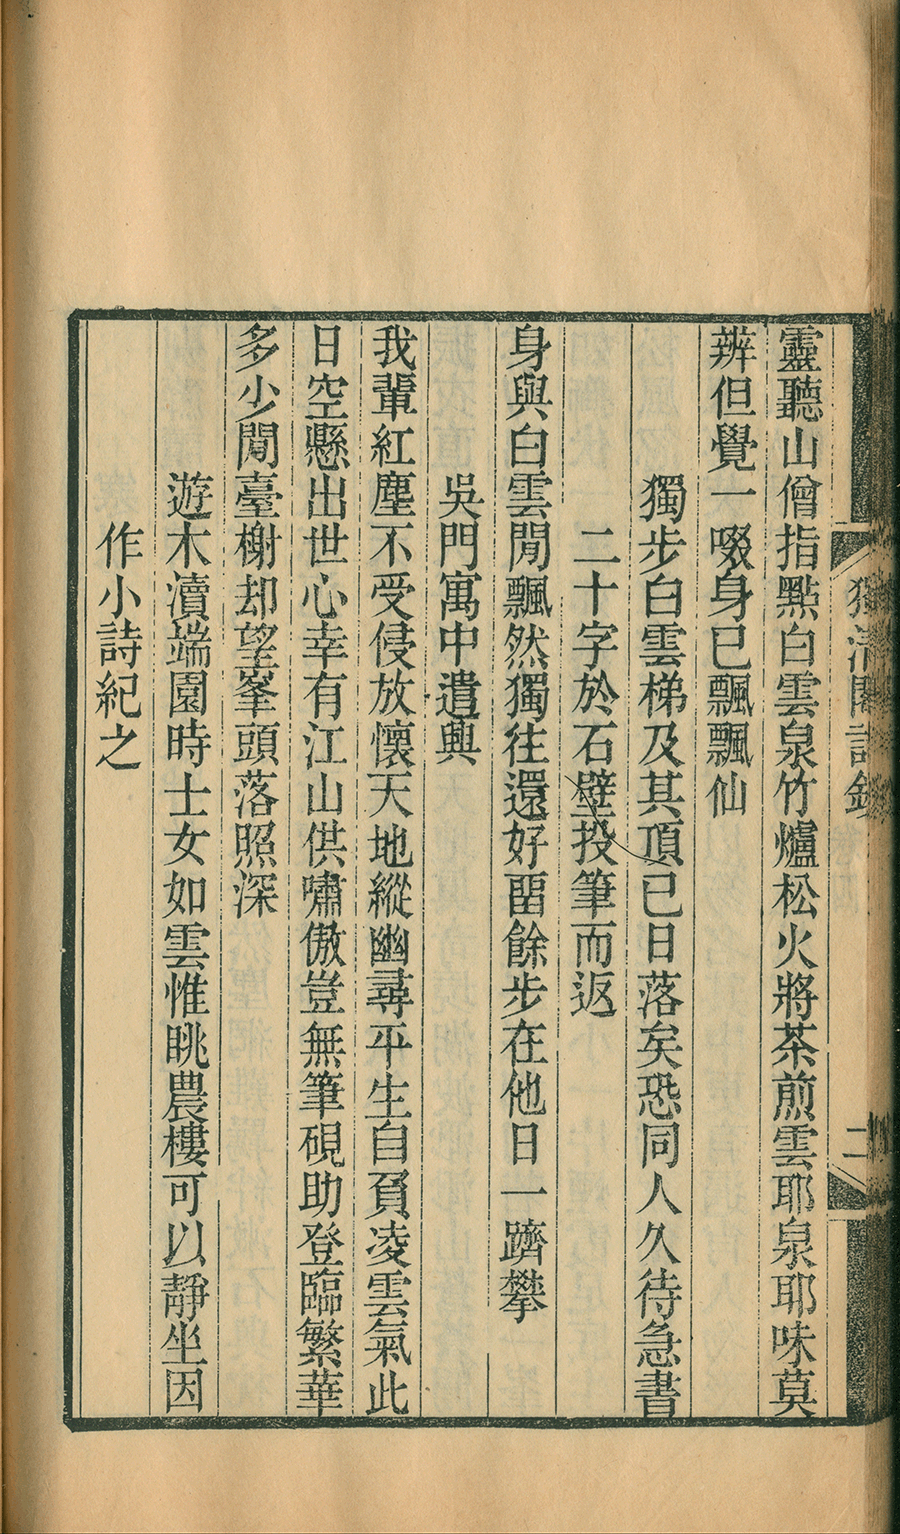 靈聽山僧指點白雲泉竹爐松火將茶煎雲耶泉耶味莫
辨但覺一啜身已飄飄仙
獨步白雲梯及其頂已日落矣恐同人久待急書
二十字於石壁投筆而返
身與白雲閒飄然獨往還好畱餘步在他日一躋攀
吳門寓中遣興
我輩紅塵不受侵放懷天地縱幽尋平生自負凌雲氣此
日空懸出世心幸有江山供嘯傲豈無筆硯助登臨繁華
多少閒臺榭却望峯頭落照深
遊木瀆端園時士女如雲惟眺農樓可以靜坐因
作小詩紀之